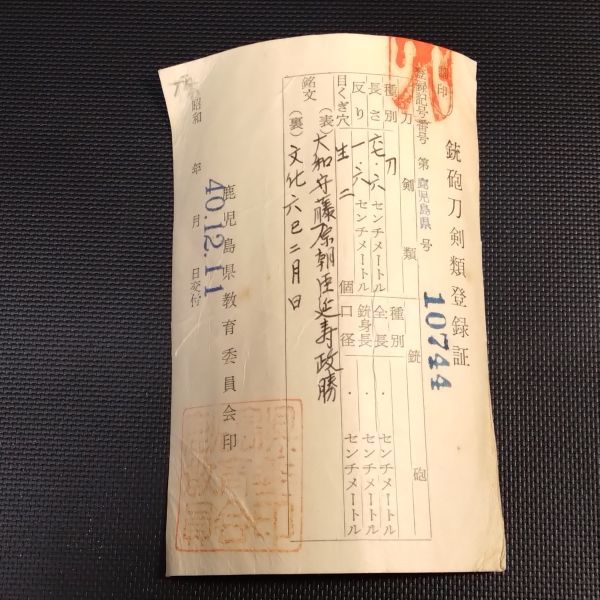 銃砲刀剣類登録証
登録記号番号 第 鹿児島県 号
10744
刀剣類
種別 刀
長さ 七〇・六 センチメートル
反り 一・六 センチメートル
目くぎ穴 生 二 個
銃砲
種別
全長 ・ センチメートル
銃身長 ・ センチメートル
口径 ・ センチメートル
銘文
(表)大和守藤原朝臣延寿政勝
(裏)文化六巳二月日
昭和 年 月 日交付
40.12.11
鹿児島県教育委員会印